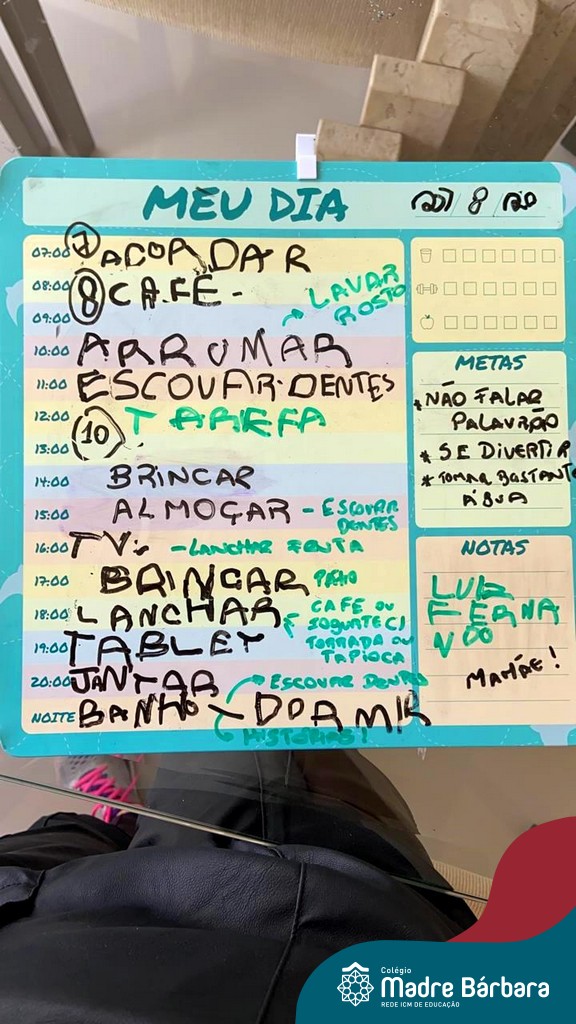 MEU DIA
07:00 7 ACORDAR
08:00 8 CAFÉ -
09:00 LAVAR ROSTO
10:00 ARRUMAR
11:00 ESCOVAR DENTES
12:00 TAREFA
13:00 10
14:00 BRINCAR
15:00 ALMOÇAR - ESCOVAR DENTES
16:00 TV: - LANCHAR FRUTA
17:00 BRINCAR
18:00 LANCHAR CAFÉ OU IOGURTE C/ TORRADA OU TAPIOCA
19:00 TABLET
20:00 JANTAR
NOITE BANHO - DORMIR
ESCOVAR
HISTÓRIAS!
METAS
* NÃO FALAR
PALAVRÃO
* SE DIVERTIR
* TOMAR BASTANTE
ÁGUA
NOTAS
LUIZ
FERNA
NDO
MAMÃE!
Colégio
Madre Bárbara
REDE ICM DE EDUCAÇÃO